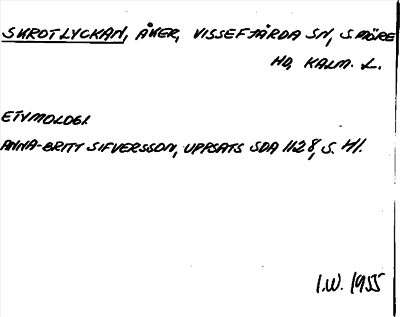 SKROTLYCKAN, ÅKER, VISSEFJÄRDA SN, S. MÖRE
HD, KALM. L.
ETYMOLOGI.
ANNA-BRITT SIFVERSSON, UPPSATS SDA 1128, S. 41.
I.W. 1955